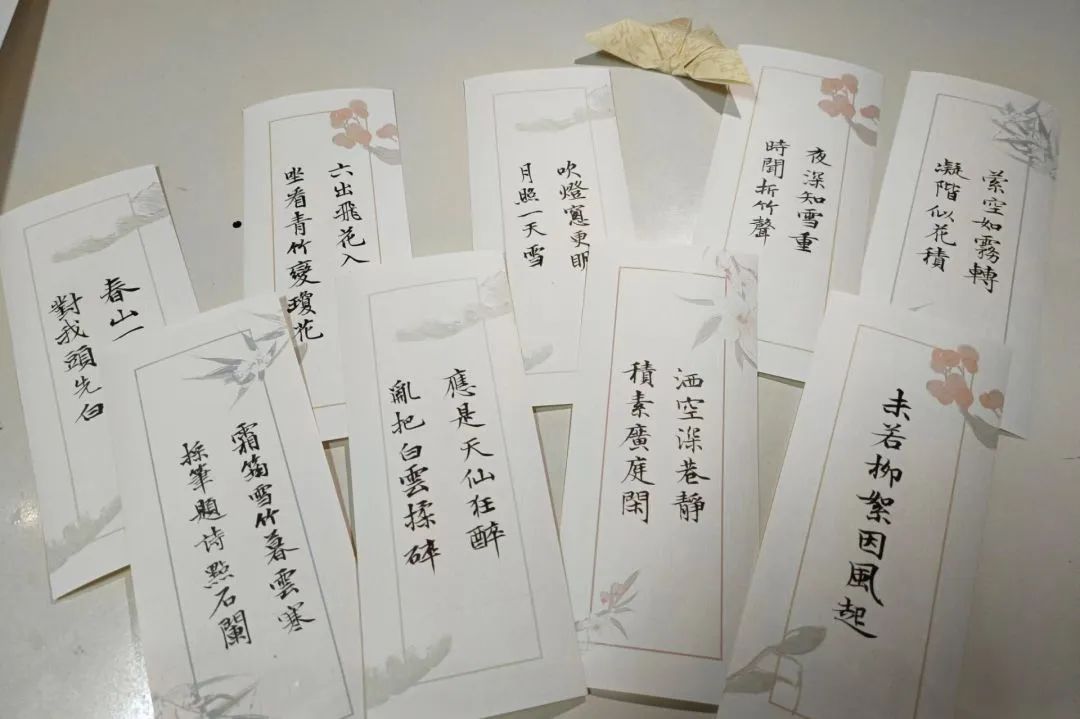 春山一
對我頭先白
六出飛花入
坐看青竹變瓊花
吹燈窻更明
月照一天雪
夜深知雪重
時聞折竹聲
縈空如霧轉
凝階似花積
霜筠雪竹暮雲寒
採筆題詩點石闌
應是天仙狂醉
亂把白雲揉碎
洒空深巷靜
積素廣庭閑
未若柳絮因風起